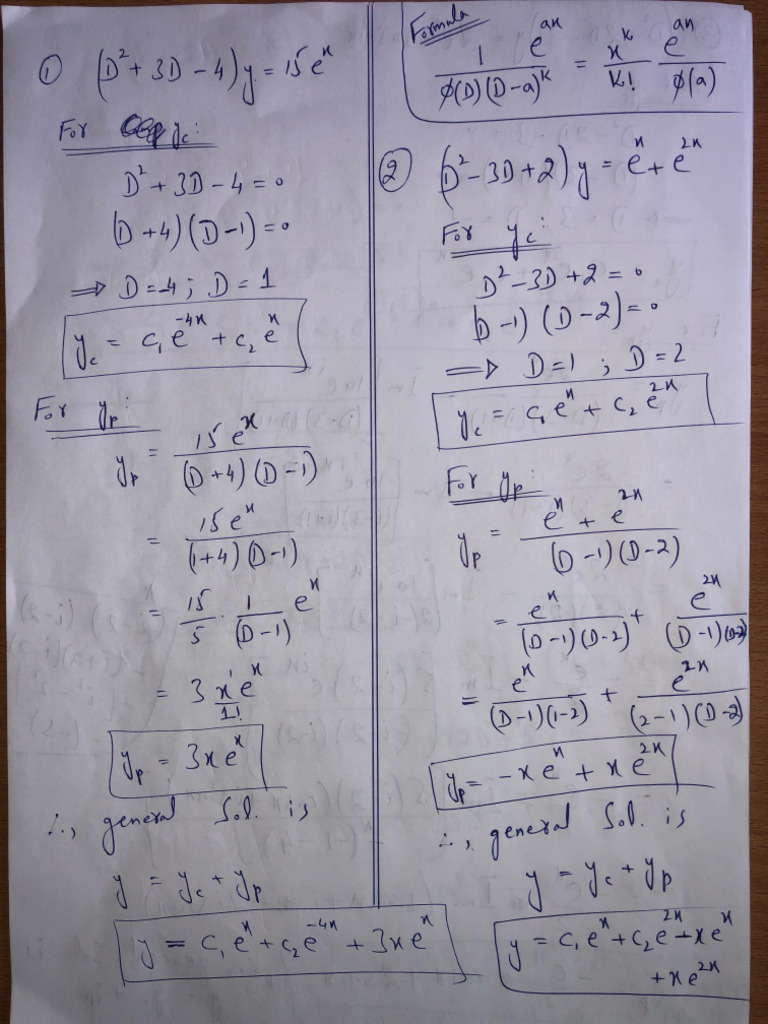 ① (D² + 3D - 4) y = 15 eˣ
For y_c:
D² + 3D - 4 = 0
(D + 4) (D - 1) = 0
⟹ D = -4 ; D = 1
y_c = c₁ e^{-4x} + c₂ eˣ
For y_p:
y_p = 15 eˣ / (D + 4) (D - 1)
= 15 eˣ / (1 + 4) (D - 1)
= 15/5 · 1/(D - 1) eˣ
= 3 x¹/1! eˣ
y_p = 3x eˣ
∴, general Sol. is
y = y_c + y_p
y = c₁ eˣ + c₂ e^{-4x} + 3x eˣ
Formula
1 / ϕ(D) (D - a)^k e^{ax} = x^k / k! e^{ax} / ϕ(a)
② (D² - 3D + 2) y = eˣ + e^{2x}
For y_c:
D² - 3D + 2 = 0
(D - 1) (D - 2) = 0
⟹ D = 1 ; D = 2
y_c = c₁ eˣ + c₂ e^{2x}
For y_p:
y_p = eˣ + e^{2x} / (D - 1) (D - 2)
= eˣ / (D - 1) (D - 2) + e^{2x} / (D - 1) (D - 2)
= eˣ / (D - 1) (1 - 2) + e^{2x} / (2 - 1) (D - 2)
y_p = - x eˣ + x e^{2x}
∴, general Sol. is
y = y_c + y_p
y = c₁ eˣ + c₂ e^{2x} - x eˣ
+ x e^{2x}